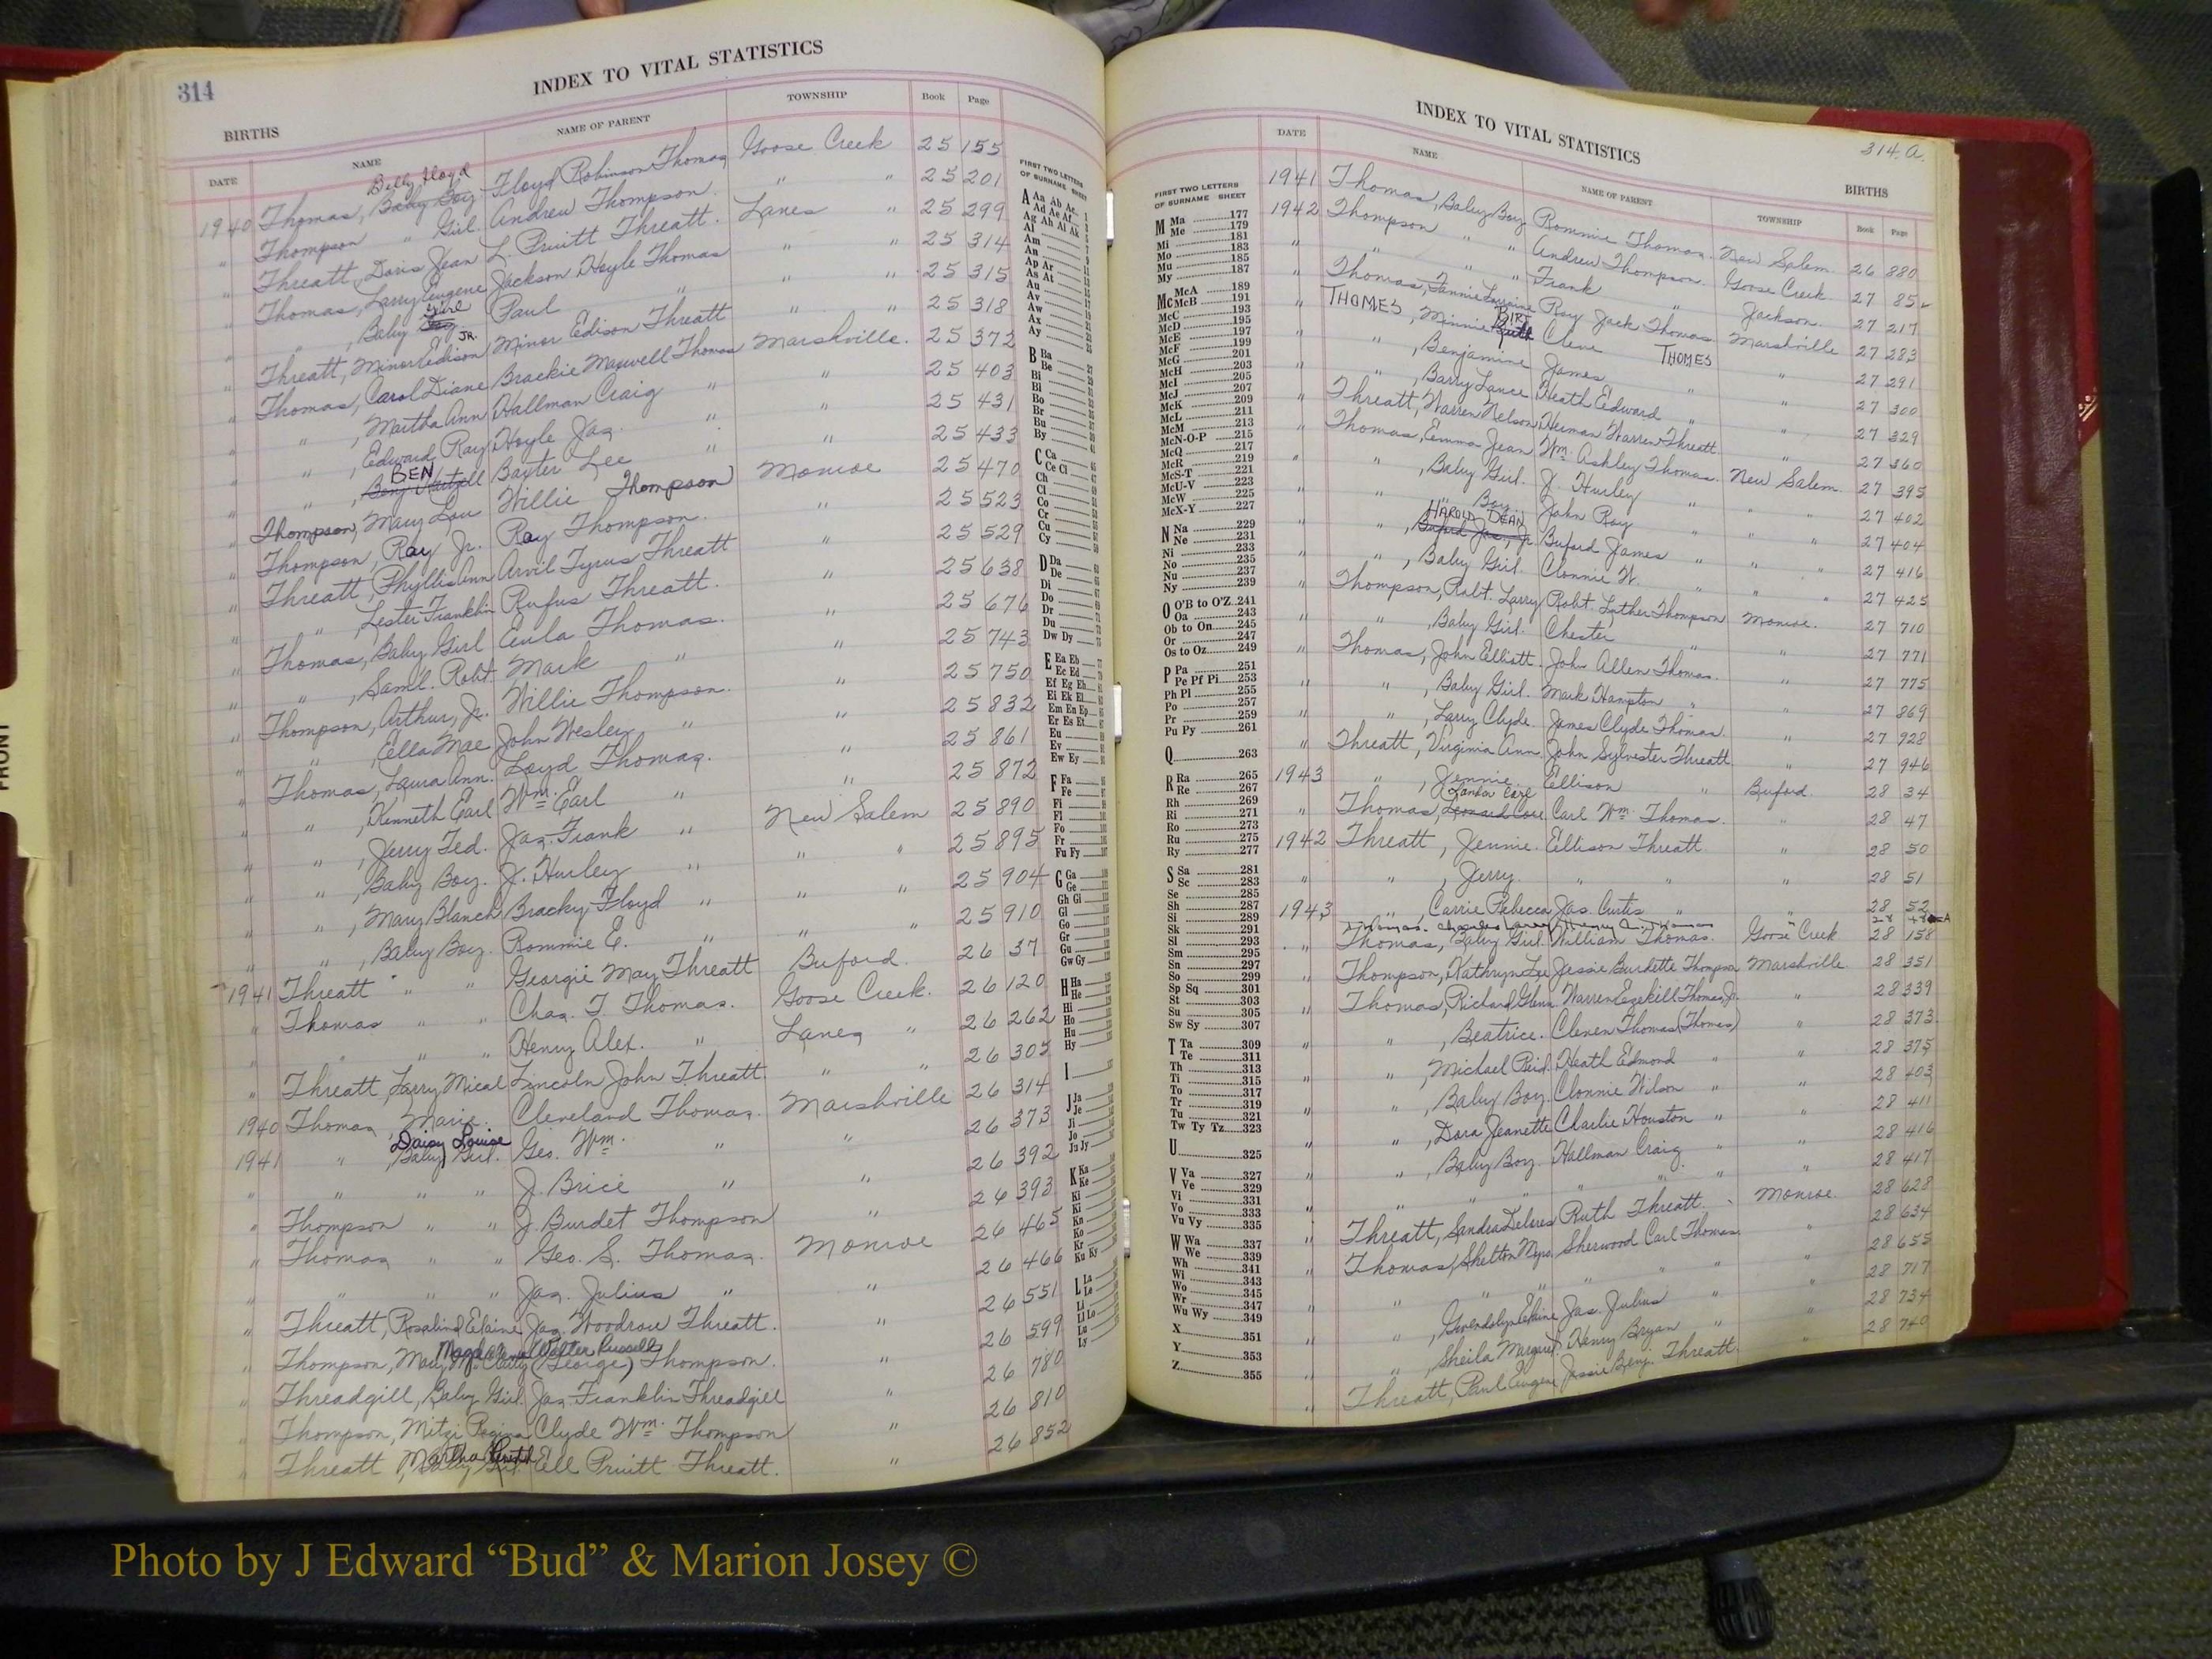 314
INDEX TO VITAL STATISTICS
BIRTHS
DATE NAME NAME OF PARENT TOWNSHIP Book Page
Billy Floyd
1940 Thomas, Baby Boy Floyd Robinson Thomas Goose Creek 25 155
" Thompson " Girl. Andrew Thompson. " " 25 201
" Threatt, Doris Jean L. Pruitt Threatt. Lanes " 25 299
" Thomas, Larry Eugene Jackson Hoyle Thomas " " 25 314
" " , Baby Girl Paul " " " 25 315
" Threatt, Minor Edison JR. Minor Edison Threatt " " 25 318
" Thomas, Carol Diane Brackie Maxwell Thomas Marshville. 25 372
" " , Martha Ann Hallman Craig " " 25 403
" " , Edward Ray Hoyle Jas. " " 25 431
BEN
" " , Baxter Lee " " 25 433
" Thompson, Mary Lou Willie Thompson Monroe 25 470
" Thompson, Ray Jr. Ray Thompson. " 25 523
" Threatt, Phyllis Ann Arvil Tyrus Threatt " 25 529
" " , Lester Franklin Rufus Threatt. " 25 638
" Thomas, Baby Girl Eula Thomas. " 25 676
" " , Saml. Robt. Mark " " 25 743
" Thompson, Arthur, Jr. Willie Thompson. " 25 750
" " , Ella Mae John Wesley " " 25 832
" Thomas, Laura Ann. Loyd Thomas. " 25 861
" " , Kenneth Earl Wm. Earl " " 25 872
" " , Jerry Ted. Jas. Frank " New Salem 25 890
" " , Baby Boy. J. Hurley " " " 25 895
" " , Mary Blanch Bracky Floyd " " " 25 904
" " , Baby Boy. Rommie E. " " " 25 910
1941 Threatt " " Georgie May Threatt Buford. 26 37
" Thomas " " Chas. T. Thomas. Goose Creek. 26 120
" " " " Henry Alex. " Lanes " 26 262
" Threatt, Larry Mical Lincoln John Threatt. " " 26 305
1940 Thomas, Marie. Cleveland Thomas. Marshville 26 314
Daisy Louise
1941 " , Baby Girl. Geo. Wm. " " 26 373
" " " " J. Brice " " 26 392
" Thompson " " J. Burdet Thompson " 26 393
" Thomas " " Geo. S. Thomas. Monroe 26 465
" " " " Jas. Julius " " 26 466
" Threatt, Rosalind Elaine Jas. Woodrow Threatt. " 26 551
Walter Russell
" Thompson, Mary (George) Thompson. " 26 599
" Threadgill, Baby Girl. Jas. Franklin Threadgill " 26 780
" Thompson, Mitzi Regina Clyde Wm. Thompson " 26 810
" Threatt, Martha Ell Pruitt Threatt. " 26 852
FIRST TWO LETTERS
OF SURNAME SHEET
A Aa Ab Ac
Ad Ae Af
Ag Ah Ai Ak
Al
Am
An
Ap Ar
As At
Au
Av
Aw
Ax
Ay
B Ba
Be
Bi
Bl
Bo
Br
Bu
By
C Ca
Ce Ci
Ch
Cl
Co
Cr
Cu
Cy
D Da
De
Di
Do
Dr
Du
Dw Dy
E Ea Eb
Ec Ed
Ef Eg Eh
Ei Ek El
Em En Ep
Er Es Et
Eu
Ev
Ew Ey
F Fa
Fe
Fi
Fl
Fo
Fr
Fu Fy
G Ga
Ge
Gh Gi
Gl
Go
Gr
Gu
Gw Gy
H Ha
He
Hi
Ho
Hu
Hy
I
J Ja
Je
Ji
Jo
Ju Jy
K Ka
Ke
Ki
Kl
Kn
Ko
Kr
Ku Ky
L La
Le
Li
Ll Lo
Lu
Ly
INDEX TO VITAL STATISTICS
314. A.
BIRTHS
DATE NAME NAME OF PARENT TOWNSHIP Book Page
1941 Thomas, Baby Boy Rommie Thomas. New Salem. 26 880
1942 Thompson " " Andrew Thompson. Goose Creek 27 85
" " " " Frank " Jackson. 27 217
" Thomas, Fannie Lorraine Ray Jack Thomas Marshville 27 283
" THOMES, Minnie Cleve THOMES " 27 291
" " , Benjamine James " " 27 300
" " , Barry Lance Heath Edward " " 27 329
" Threatt, Warren Nelson Herman Warren Threatt " 27 360
" Thomas, Emma Jean Wm. Ashley Thomas. New Salem. 27 395
" " , Baby Girl. J. Hurley " " " 27 402
" " " Boy. John Ray " " " 27 404
HAROLD DEAN
" " , Buford Jas., Jr. Buford James " " " 27 416
" " , Baby Girl. Clonnie W. " " " 27 425
" Thompson, Robt. Larry Robt. Luther Thompson Monroe. 27 710
" " , Baby Girl. Chester " " 27 771
" Thomas, John Elliott. John Allen Thomas. " 27 775
" " , Baby Girl. Mark Hampton " " 27 869
" " , Larry Clyde. James Clyde Thomas. " 27 928
" Threatt, Virginia Ann. John Sylvester Threatt " 27 946
1943 " , Jennie. Ellison " Buford. 28 34
" Thomas, Carl Wm. Thomas. " 28 47
1942 Threatt, Jennie. Ellison Threatt " 28 50
" " , Jerry. " " " 28 51
1943 " , Carrie Rebecca Jas. Curtis " " 28 52
Thomas, Charles Larry Henry Thomas
" Thomas, Baby Girl William Thomas. Goose Creek 28 158
" Thompson, Kathryn Lee Jessie Burdette Thompson Marshville. 28 351
" Thomas, Richard Glenn Warren Ezekill Thomas, Jr. " 28 339
" " , Beatrice. Cleven Thomas (Thomes) " 28 373
" " , Michael Reid. Heath Edmond " " 28 375
" " , Baby Boy. Clonnie Wilson " " 28 403
" " , Dora Jeanette Charlie Houston " " 28 411
" " , Baby Boy. Hallman Craig " " 28 416
" " " " " " " 28 417
" Threatt, Sandra Delores Ruth Threatt. Monroe. 28 628
" Thomas, Shelton Sherwood Carl Thomas " 28 634
" " " " " " 28 655
" " , Gwendolyn Elaine Jas. Julius " " 28 717
" " , Sheila Margaret Henry Bryan " " 28 734
" Threatt, Paul Eugene Jessie Benj. Threatt. 28 740
FIRST TWO LETTERS
OF SURNAME SHEET
M Ma 177
Me 179
Mi 181
Mo 183
Mu 185
My 187
Mc McA 189
McB 191
McC 193
McD 195
McE 197
McF 199
McG 201
McH 203
McI 205
McJ 207
McK 209
McL 211
McM 213
McN-O-P 215
McQ 217
McR 219
McS-T 221
McU-V 223
McW 225
McX-Y 227
N Na 229
Ne 231
Ni 233
No 235
Nu 237
Ny 239
O O'B to O'Z 241
Oa 243
Ob to On 245
Or 247
Os to Oz 249
P Pa 251
Pe Pf Pi 253
Ph Pl 255
Po 257
Pr 259
Pu Py 261
Q 263
R Ra 265
Re 267
Rh 269
Ri 271
Ro 273
Ru 275
Ry 277
S Sa 281
Sc 283
Se 285
Sh 287
Si 289
Sk 291
Sl 293
Sm 295
Sn 297
So 299
Sp Sq 301
St 303
Su 305
Sw Sy 307
T Ta 309
Te 311
Th 313
Ti 315
To 317
Tr 319
Tu 321
Tw Ty Tz 323
U 325
V Va 327
Ve 329
Vi 331
Vo 333
Vu Vy 335
W Wa 337
We 339
Wh 341
Wi 343
Wo 345
Wr 347
Wu Wy 349
X 351
Y 353
Z 355
FRONT
Photo by J Edward “Bud” & Marion Josey ©